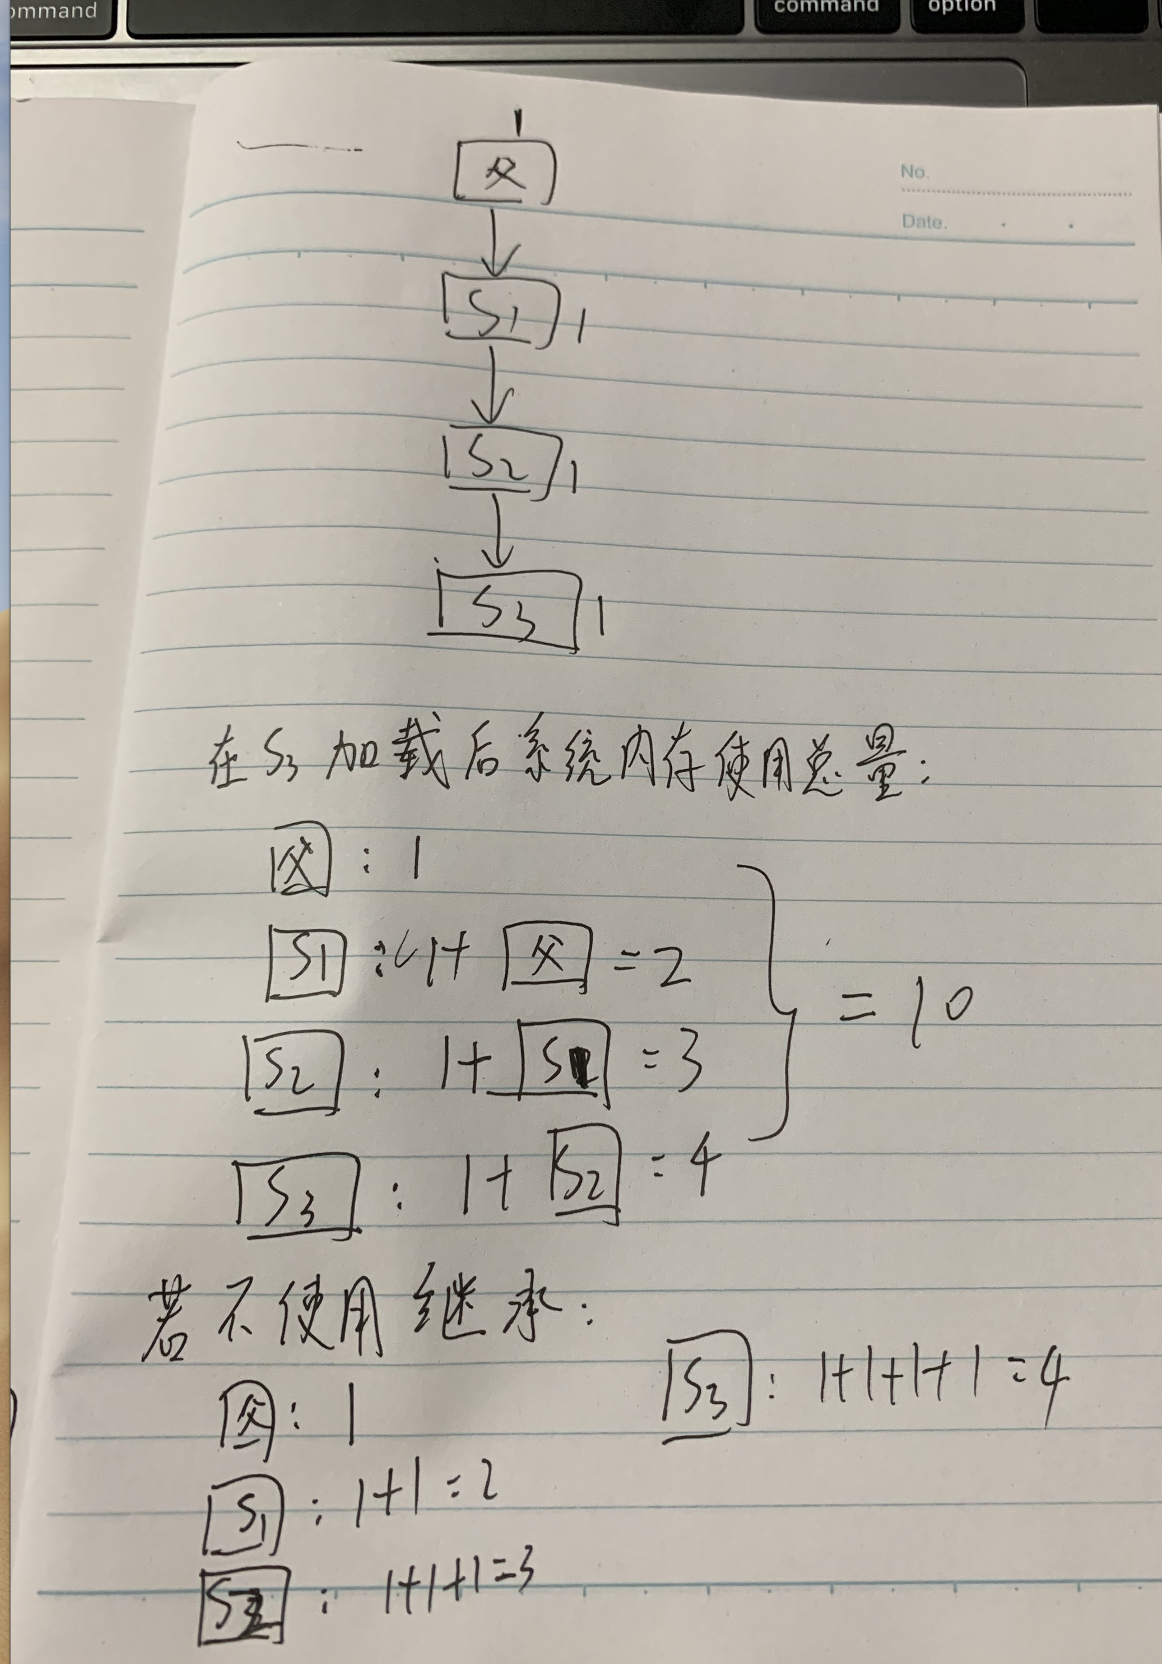 ommand
command
option
No.
Date.
1
父
S1 1
S2 1
S3 1
在S3加载后系统内存使用总量:
父: 1
S1: 1+ 父 =2
S2: 1+ S1 =3
S3: 1+ S2 =4
=10
若不使用继承:
父: 1
S1: 1+1=2
S2: 1+1+1=3
S3: 1+1+1+1=4